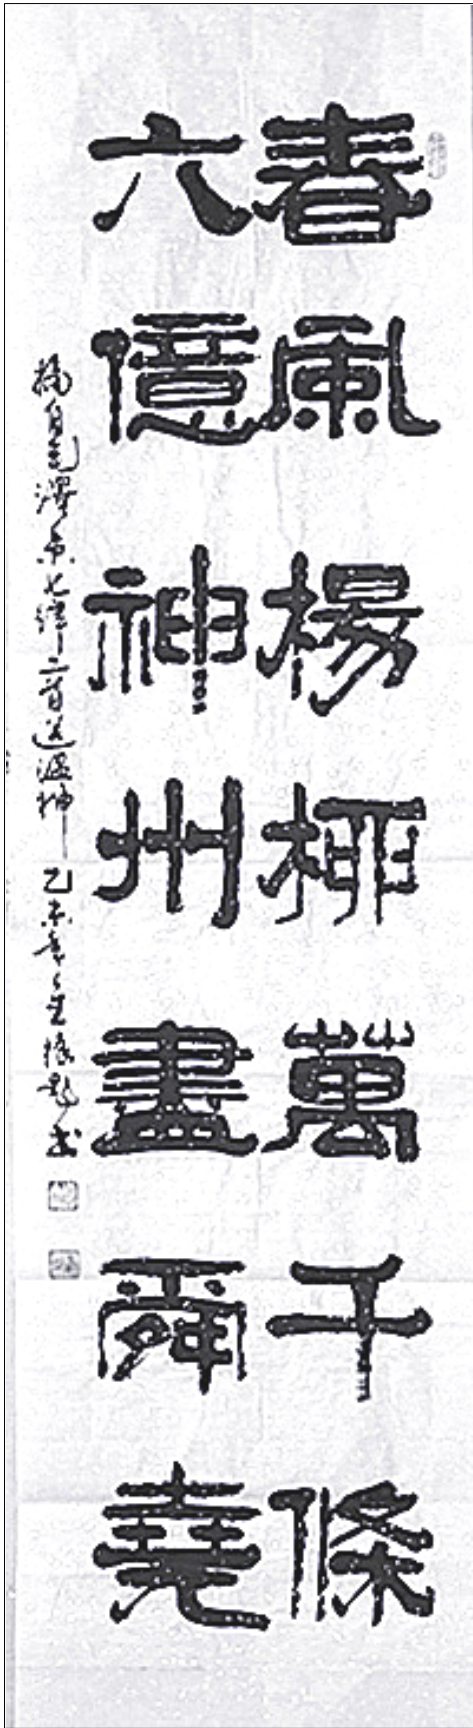 春風楊柳萬千條
六億神州盡舜堯
摘自毛澤东七律二首送瘟神 乙未 书